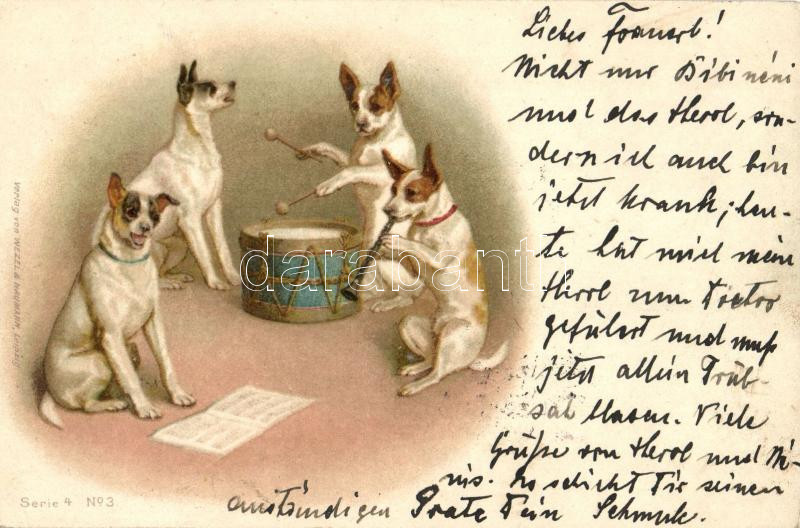 Liebes
Nicht nur Bibi néni
und das Herrl, son-
dern ich auch bin
jetzt krank; heu-
te hat mich mein
Herrl zum Doctor
geführt und muß
jetzt allein Trüb-
sal blasen. Viele
Grüße von Herrl und Mi-
mis. Es schickt Dir seinen
anständigen Prate Dein Schmule.
Verlag von WEZEL & NAUMANN, Leipzig
Serie 4 No 3
darabanth